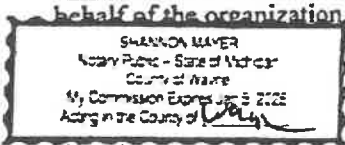 behalf of the organization
SHANNON MAYER
Notary Public - State of Michigan
County of Wayne
My Commission Expires Jan 9, 202
Acting in the County of